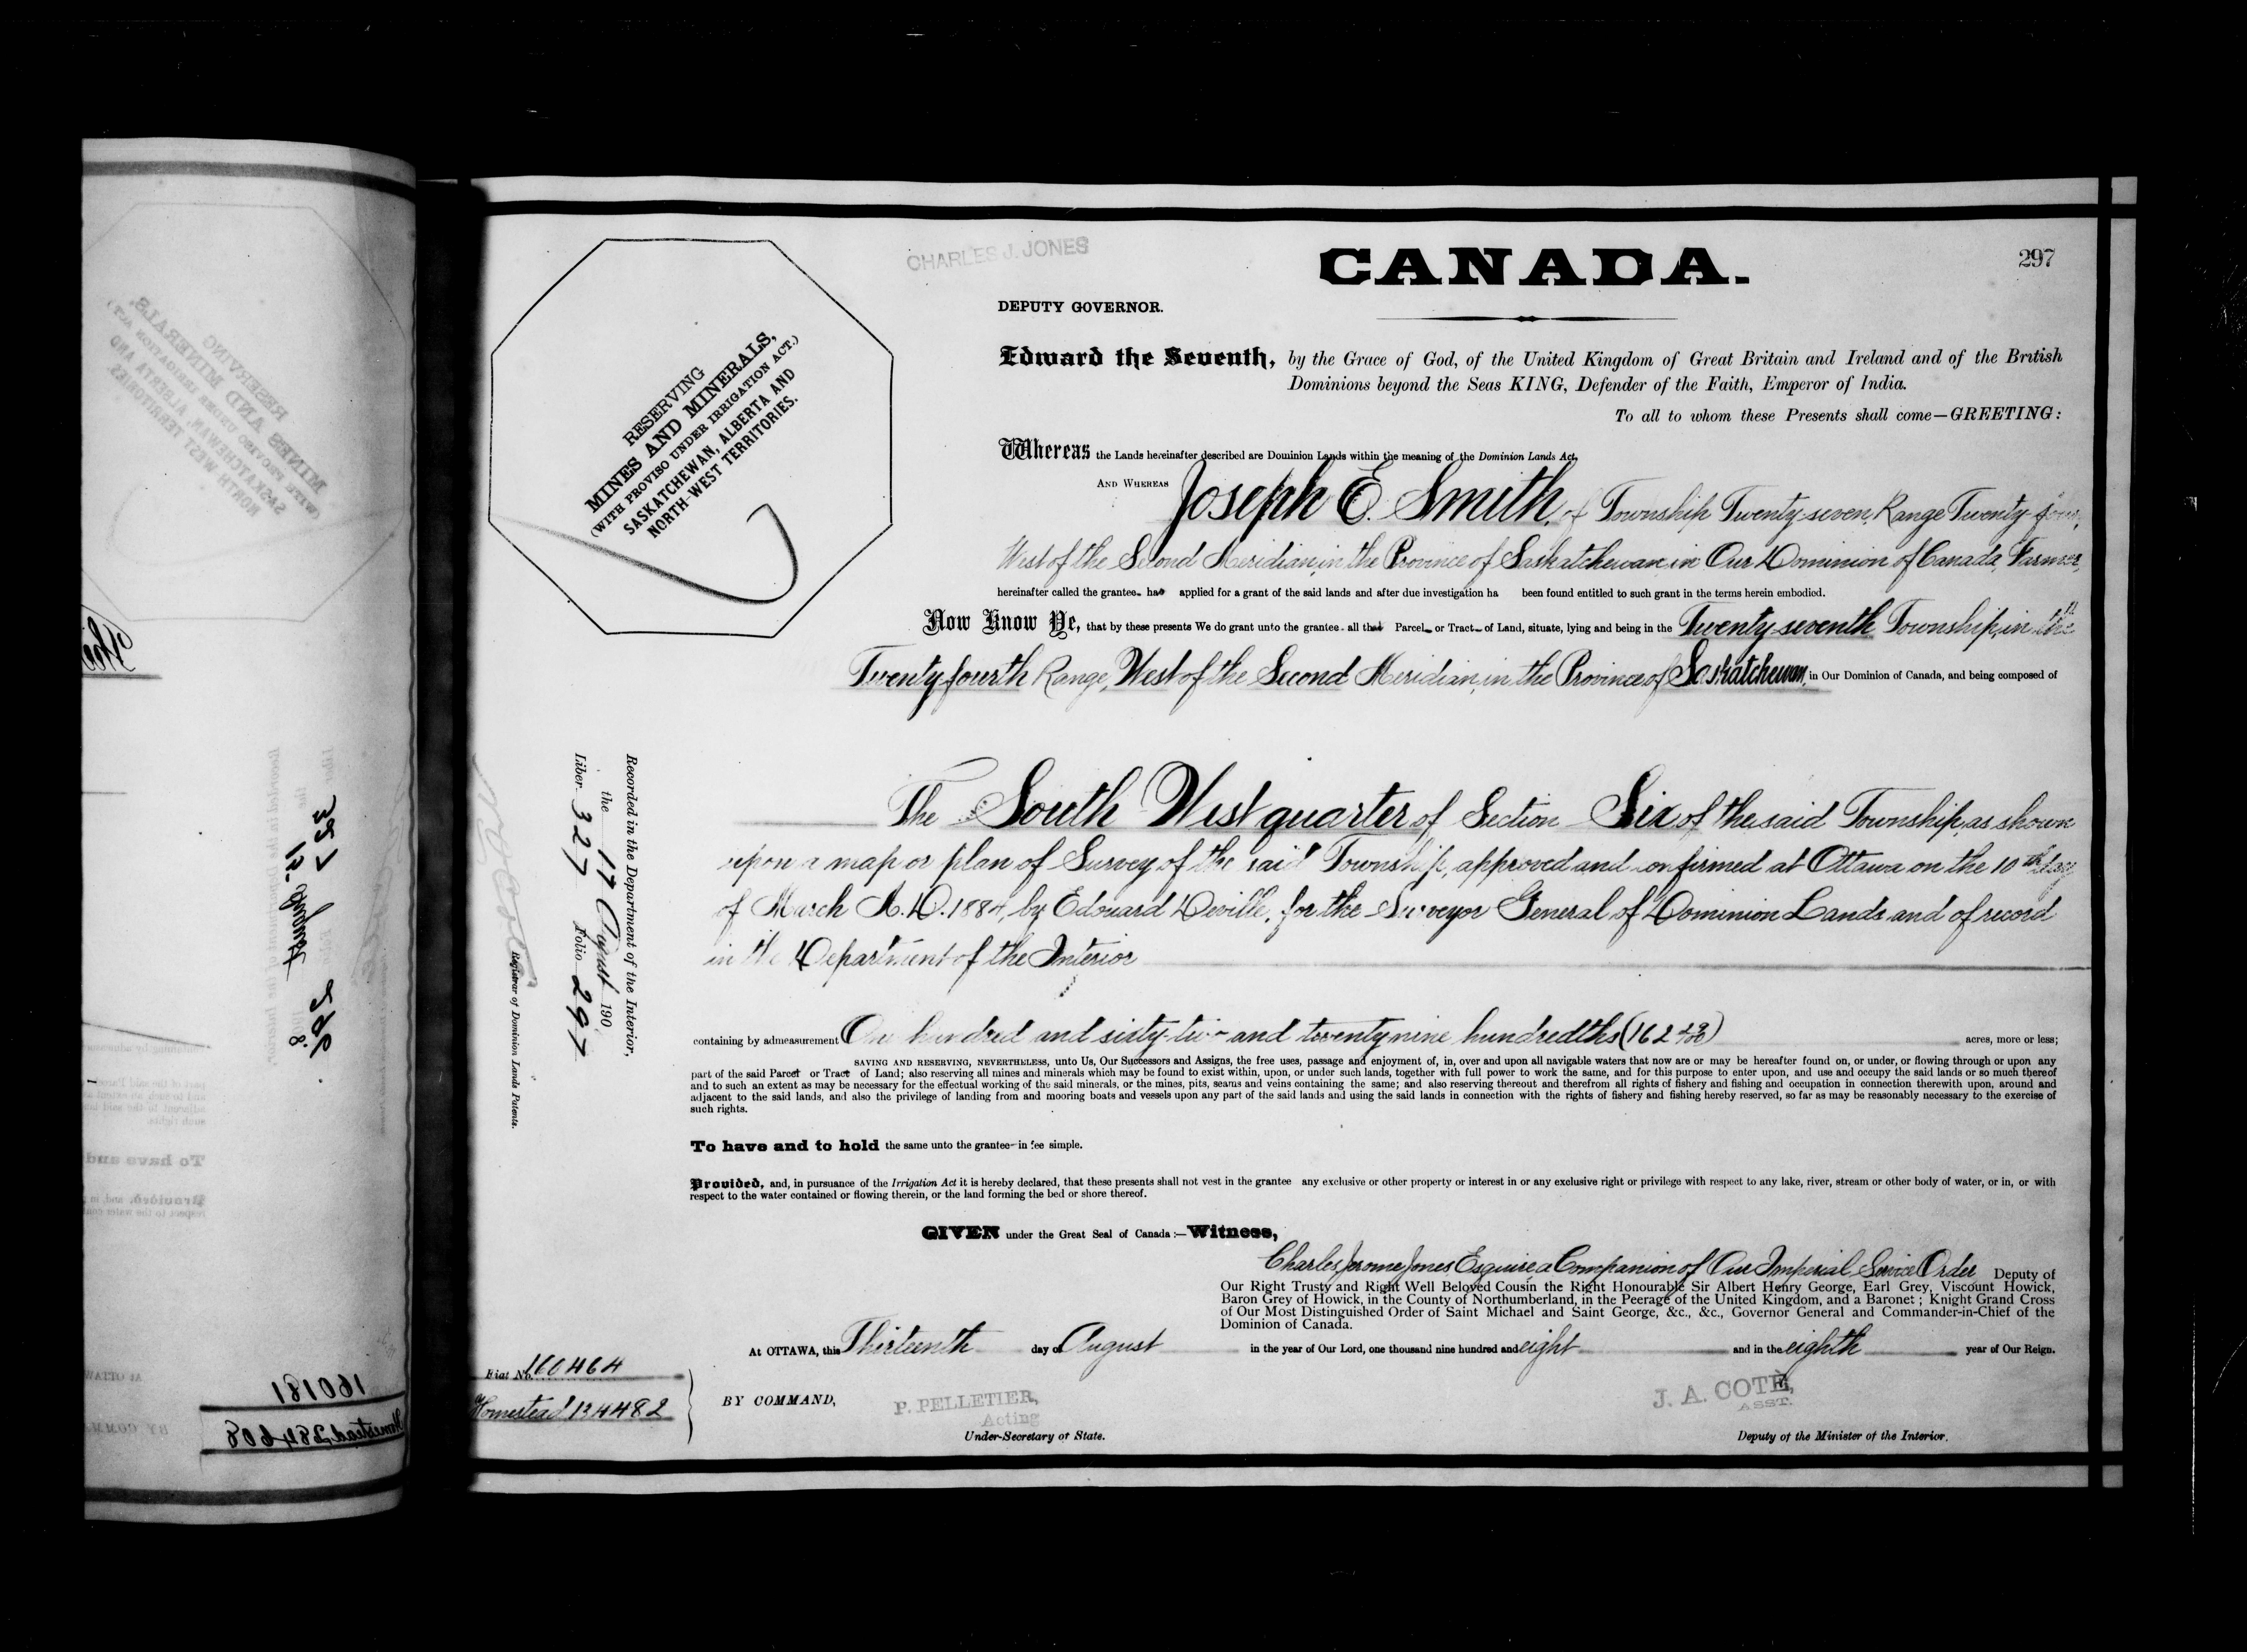 CHARLES J. JONES
CANADA.
297
DEPUTY GOVERNOR.
RESERVING
MINES AND MINERALS,
(WITH PROVISO UNDER IRRIGATION ACT.)
SASKATCHEWAN, ALBERTA AND
NORTH-WEST TERRITORIES.
Edward the Seventh, by the Grace of God, of the United Kingdom of Great Britain and Ireland and of the British
Dominions beyond the Seas KING, Defender of the Faith, Emperor of India.
To all to whom these Presents shall come—GREETING:
Whereas the Lands hereinafter described are Dominion Lands within the meaning of the Dominion Lands Act,
AND WHEREAS Joseph E. Smith, of Township Twenty seven, Range Twenty four,
West of the Second Meridian, in the Province of Saskatchewan in Our Dominion of Canada, Farmer,
hereinafter called the grantee has applied for a grant of the said lands and after due investigation ha been found entitled to such grant in the terms herein embodied.
Now Know Ye, that by these presents We do grant unto the grantee all that Parcel or Tract of Land, situate, lying and being in the Twenty seventh Township, in the
Twenty fourth Range, West of the Second Meridian, in the Province of Saskatchewan, in Our Dominion of Canada, and being composed of
The South West quarter of Section Six of the said Township, as shown
upon a map or plan of Survey of the said Township, approved and confirmed at Ottawa on the 10th day
of March A.D. 1884, by Edouard Deville, for the Surveyor General of Dominion Lands and of record
in the Department of the Interior
Recorded in the Department of the Interior,
the 17 August 190
Liber 327 Folio 297
Registrar of Dominion Lands Patents.
containing by admeasurement One hundred and sixty-two and twenty nine hundredths (162 29/100) acres, more or less;
SAVING AND RESERVING, NEVERTHELESS, unto Us, Our Successors and Assigns, the free uses, passage and enjoyment of, in, over and upon all navigable waters that now are or may be hereafter found on, or under, or flowing through or upon any
part of the said Parcel or Tract of Land; also reserving all mines and minerals which may be found to exist within, upon, or under such lands, together with full power to work the same, and for this purpose to enter upon, and use and occupy the said lands or so much thereof
and to such an extent as may be necessary for the effectual working of the said minerals, or the mines, pits, seams and veins containing the same; and also reserving thereout and therefrom all rights of fishery and fishing and occupation in connection therewith upon, around and
adjacent to the said lands, and also the privilege of landing from and mooring boats and vessels upon any part of the said lands and using the said lands in connection with the rights of fishery and fishing hereby reserved, so far as may be reasonably necessary to the exercise of
such rights.
To have and to hold the same unto the grantee in fee simple.
Provided, and, in pursuance of the Irrigation Act it is hereby declared, that these presents shall not vest in the grantee any exclusive or other property or interest in or any exclusive right or privilege with respect to any lake, river, stream or other body of water, or in, or with
respect to the water contained or flowing therein, or the land forming the bed or shore thereof.
GIVEN under the Great Seal of Canada:—Witness,
Charles Jerome Jones Esquire a Companion of Our Imperial Service Order Deputy of
Our Right Trusty and Right Well Beloved Cousin the Right Honourable Sir Albert Henry George, Earl Grey, Viscount Howick,
Baron Grey of Howick, in the County of Northumberland, in the Peerage of the United Kingdom, and a Baronet; Knight Grand Cross
of Our Most Distinguished Order of Saint Michael and Saint George, &c., &c., Governor General and Commander-in-Chief of the
Dominion of Canada.
At OTTAWA, this Thirteenth day of August in the year of Our Lord, one thousand nine hundred and eight and in the eighth year of Our Reign.
Fiat No. 160464
Homestead 134482
BY COMMAND,
P. PELLETIER,
Acting
Under-Secretary of State.
J. A. COTÉ,
ASST.
Deputy of the Minister of the Interior.
160181
Homestead 284608